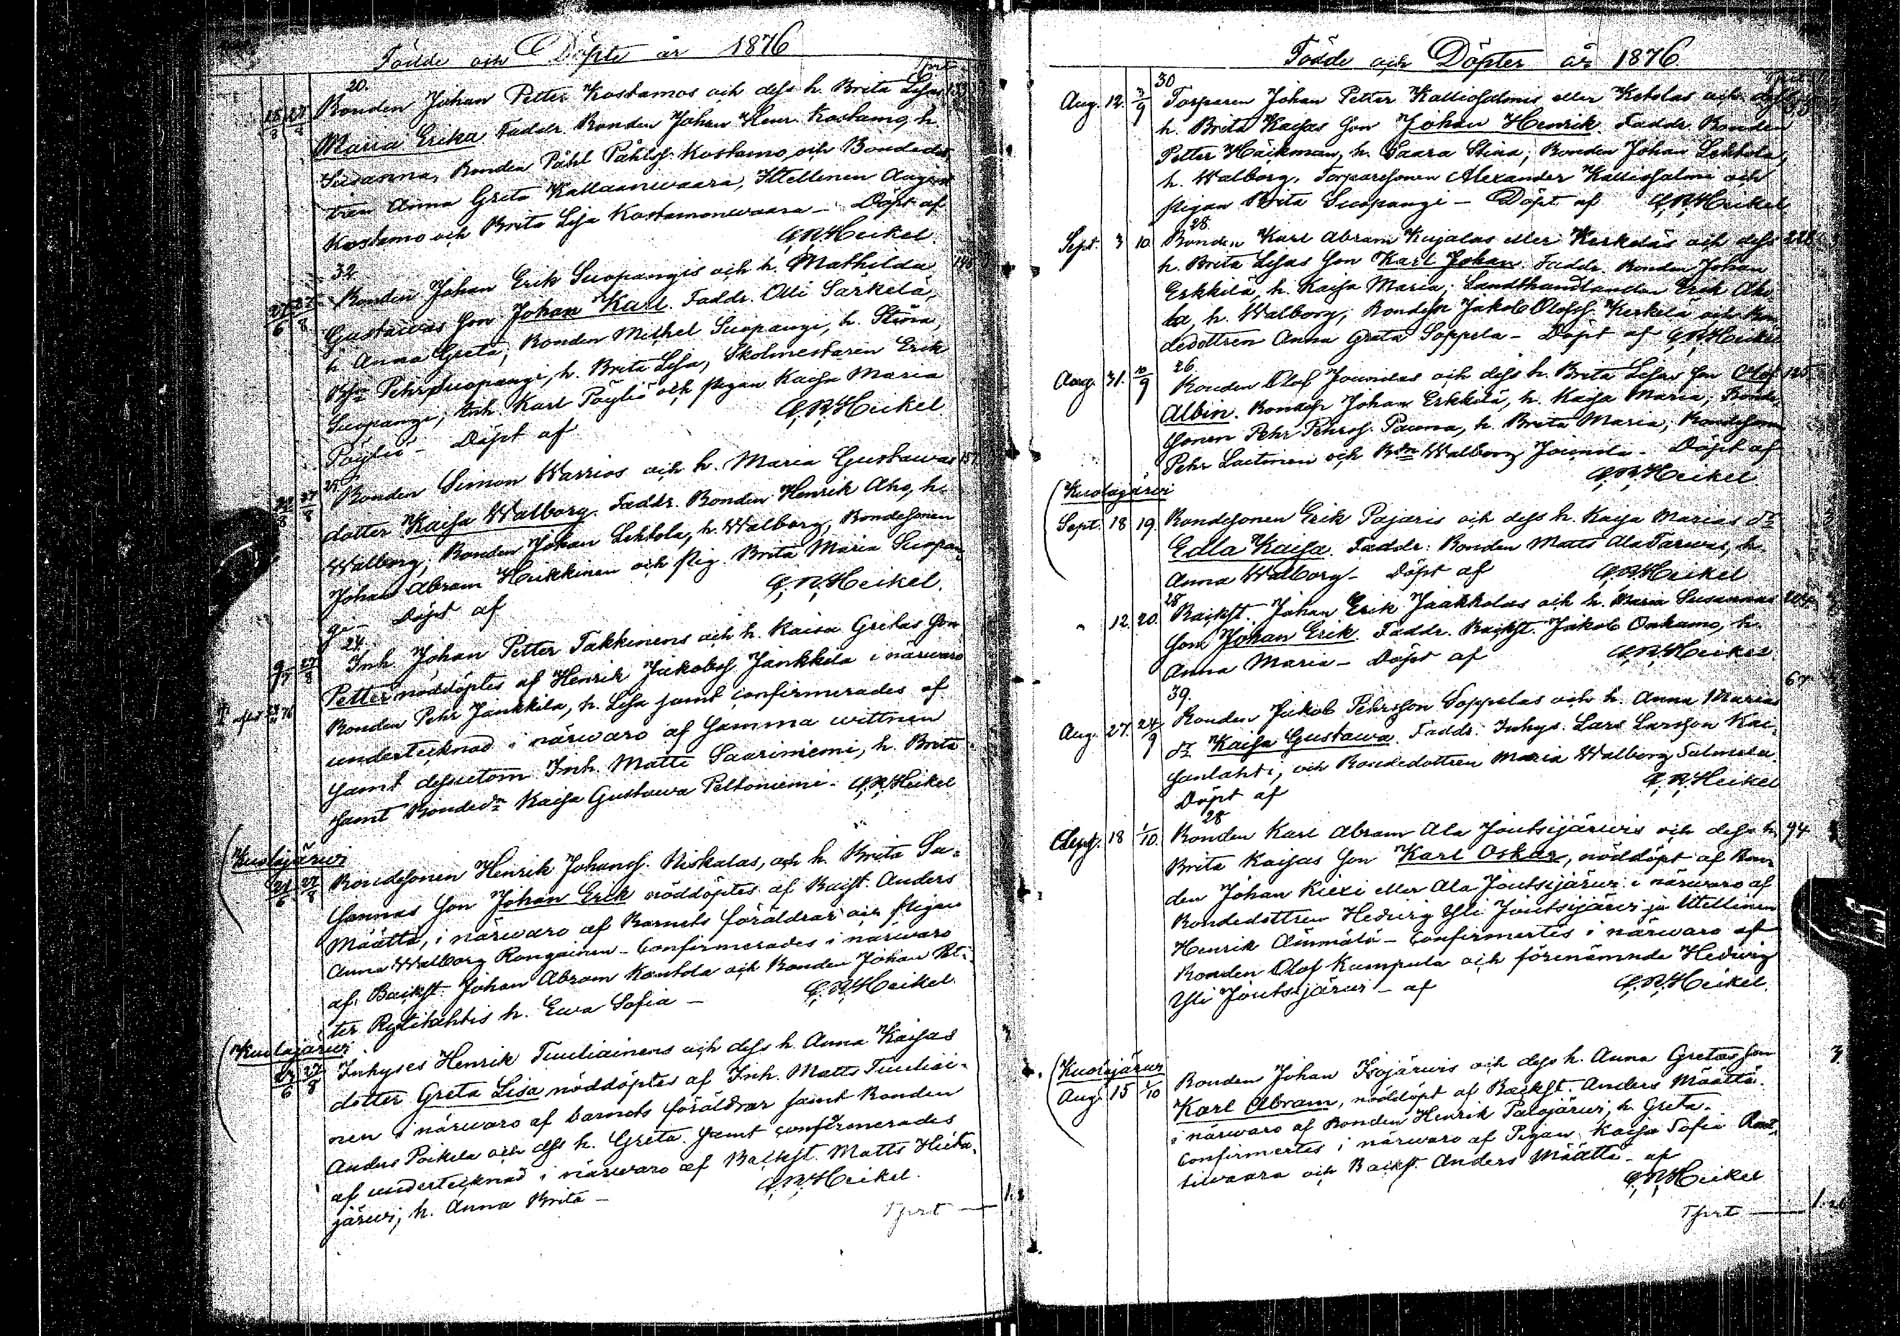 Födde och Döpte år 1876
Tprt
20.
Bonden Johan Petter Kostamos och dess h. Brita Lisas 133
18/8 27/8
Maria Erika. Faddr. Bonden Johan Henr. Kostamo, h.
Susanna, Bonden Påhl Påhlss. Kostamo och Bondedot
tren Anna Greta Kallaanwaara, Itellinen August
Kostamo och Brita Lisa Kostamonwaara – Döpt af
G.R. Heikel.
32
Bonden Johan Erik Suopangis och h. Mathilda
27/6 27/8 Gustawas son Johan Karl. Faddr. Olli Sarkela,
h. Anna Greta; Bonden Mikkel Suopangi, h. Stina,
Pehr Suopangi, h. Brita Lisa, Skolmestaren Erik
Suopangi, Inh. Karl Pöyliö och pigan Kaisa Maria
Pöyliö – Döpt af G.R. Heikel
25
Bonden Simon Warrios och h. Maria Gustawas 157
27/8 dotter Kaisa Walborg. Faddr. Bonden Henrik Aho, h.
Walborg; Bonden Johan Lehtola, h. Walborg, Bondesonen
Johan Abram Heikkinen och pig. Brita Maria Suopan
gi – Döpt af G.R. Heikel.
24.
Inh. Johan Petter Takkinens och h. Kaisa Gretas son
9/7 27/8 Petter nöddöptes af Henrik Jakobss. Jankkila i närwaro
Bonden Pehr Jankkila, h. Lisa samt confirmerades af
undertecknad i närwaro af samma wittnen
samt dessutom Inh. Matti Saariniemi, h. Brita
samt Bonded:n Kaisa Gustawa Peltoniemi – G.R. Heikel
Kuolajärwi
21/6 27/8 Bondesonen Henrik Johanss. Niskalas, och h. Brita Su-
sannas son Johan Erik nöddöptes af Backst. Anders
Määttä, i närwaro af Barnets föräldrar och pigan
Anna Walborg Rongainen – confirmerades i närwaro
af Backst. Johan Abram Kantola och Bonden Johan Pet-
ter Rytilahtis h. Ewa Sofia – G.R. Heikel.
Kuolajärwi
27/8 Inhyses Henrik Tuuliainens och dess h. Anna Kaisas
dotter Greta Lisa nöddöptes af Inh. Matts Tuuliai-
nen i närwaro af barnets föräldrar samt Bonden
Anders Poikela och dess h. Greta. samt confirmerades
af undertecknad i närwaro af Backst. Matts Hieta-
järwi, h. Anna Brita – G.R. Heikel.
Tprt —
Födde och Döpter år 1876
30
Aug. 12. 3/9 Torparen Johan Petter Kalliosalmis eller Ketolas och dess
h. Brita Kaisas son Johan Henrik. Faddr. Bonden
Petter Häckman, h. Saara Stina; Bonden Johan Lehtola,
h. Walborg, Torparesonen Alexander Kalliosalmi och
pigan Brita Suopangi – Döpt af G.R. Heikel
28.
Sept. 3 10 Bonden Karl Abram Kujalas eller Kerkeläs och dess 228
h. Brita Lisas son Karl Johan. Faddr. Bonden Johan
Erkkilä, h. Kaisa Maria; Landthandlanden Erik Aho
la, h. Walborg; Bonden Jakob Olofss. Kerkelä och Bon
dedottren Anna Greta Soppela – Döpt af G.R. Heikel
26.
Aug. 31. 10/9 Bonden Olof Jounilas och dess h. Brita Lisas son Olof 125
Albin. Bondess Johan Erkkilä, h. Kaisa Maria; Bonde
sonen Pehr Pehrss. Pauna, h. Brita Maria, Bondesonen
Pehr Laitinen och Bdn Walborg Jounila – Döpt af
G.R. Heikel
Kuolajärwi
Sept. 18 19. Bondesonen Erik Pajaris och dess h. Kaisa Marias dr
Edla Kaisa. Faddr: Bonden Matts Ala Tarwas, h.
Anna Walborg – Döpt af G.R. Heikel
28
" 12. 20. Backst. Johan Erik Jaakkolas och h. Maria Susannas 204
son Johan Erik. Faddr. Backst. Jakob Onkamo, h.
Anna Maria – Döpt af G.R. Heikel
39.
Aug. 27. 24/9 Bonden Jakob Pehrsson Soppelas och h. Anna Marias 67
dr Kaisa Gustawa. Faddr. Inhys. Lars Larsson Kai-
sanlahti, och Bondedottren Maria Walborg Salmela.
Döpt af G.R. Heikel
28
Sept. 18 1/10 Bonden Karl Abram Ala Joutsijärwis och dess h. 94
Brita Kaisas son Karl Oskar, nöddöpt af Bon
den Johan Kiexi eller Ala Joutsijärwi i närwaro af
Bondedottren Hedwig Yli Joutsijärwi ja Itellinen
Henrik Ainmälä – Confirmertes i närwaro af
Bonden Olof Kumpula och förenämnde Hedwig
Yli Joutsijärwi – af G.R. Heikel.
Kuolajärwi
Aug. 15 1/10 Bonden Johan Isojärwis och dess h. Anna Gretas son 3
Karl Abram, nöddöpt af Backst. Anders Määttä.
i närwaro af Bonden Henrik Palojärwi, h. Greta.
Confirmertes i närwaro af Pigan Kaisa Sofia Raat-
tiwaara och Backst. Anders Määttä – af
G.R. Heikel
Tprt —